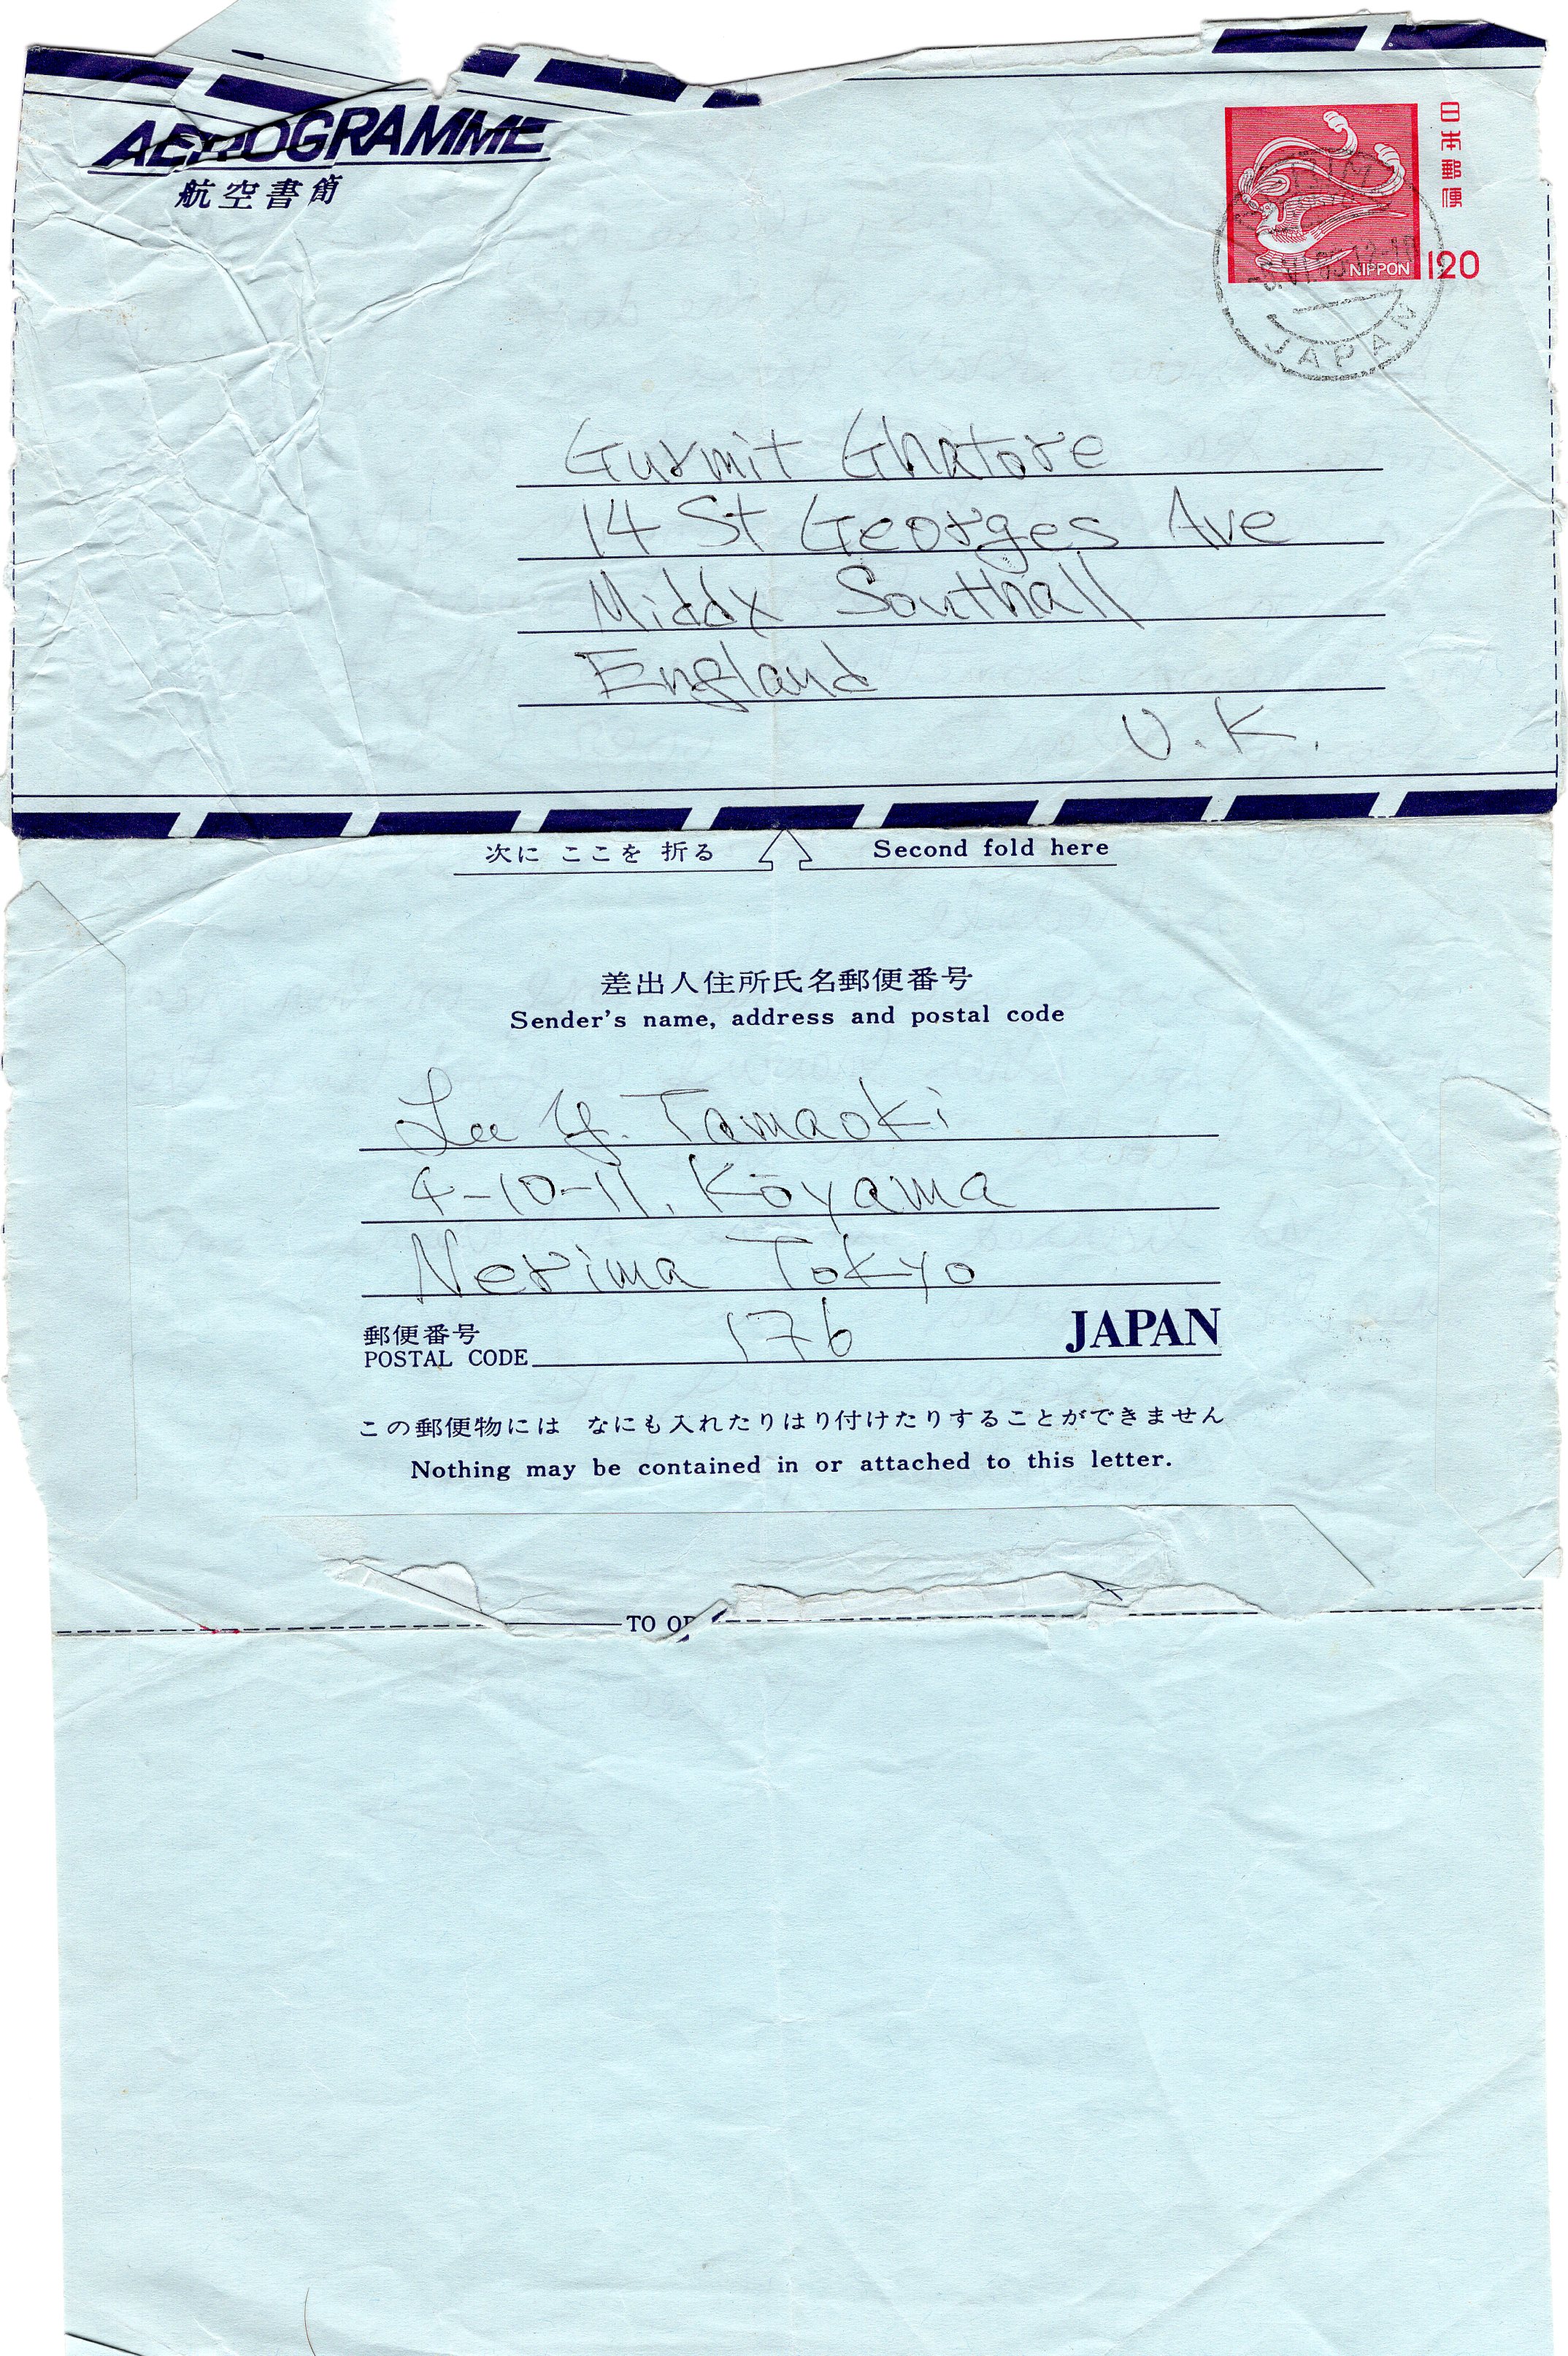 AEROGRAMME
航空書簡
日本郵便
NIPPON
120
JAPAN
Gurmit Ghatore
14 St Georges Ave
Middx Southall
England
U.K.
次に ここを 折る
Second fold here
差出人住所氏名郵便番号
Sender's name, address and postal code
Lee Y. Tamaoki
4-10-11, Kōyama
Nerima Tokyo
郵便番号
POSTAL CODE 176 JAPAN
この郵便物には なにも入れたりはり付けたりすることができません
Nothing may be contained in or attached to this letter.
TO OP